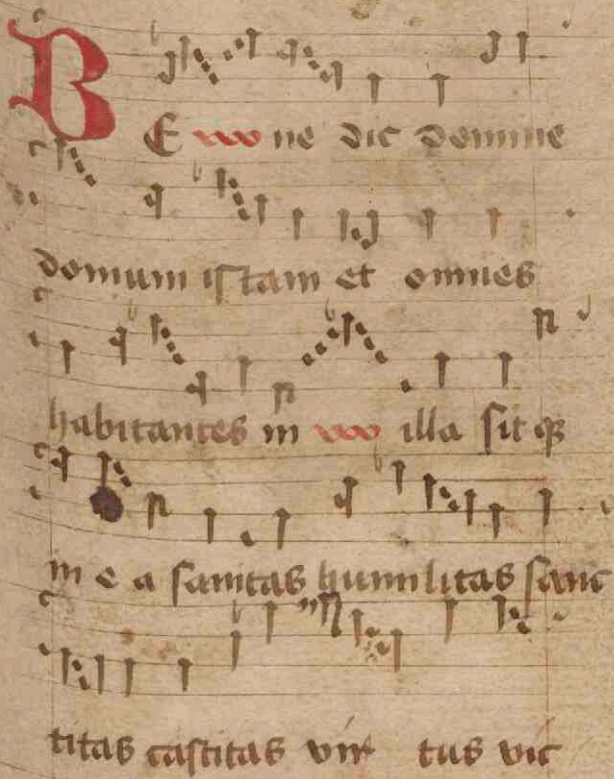 BE ne dic domine
domum istam et omnes
habitantes in illa sit qꝫ
in e a sanitas humilitas sanc
titas castitas vir tus vic